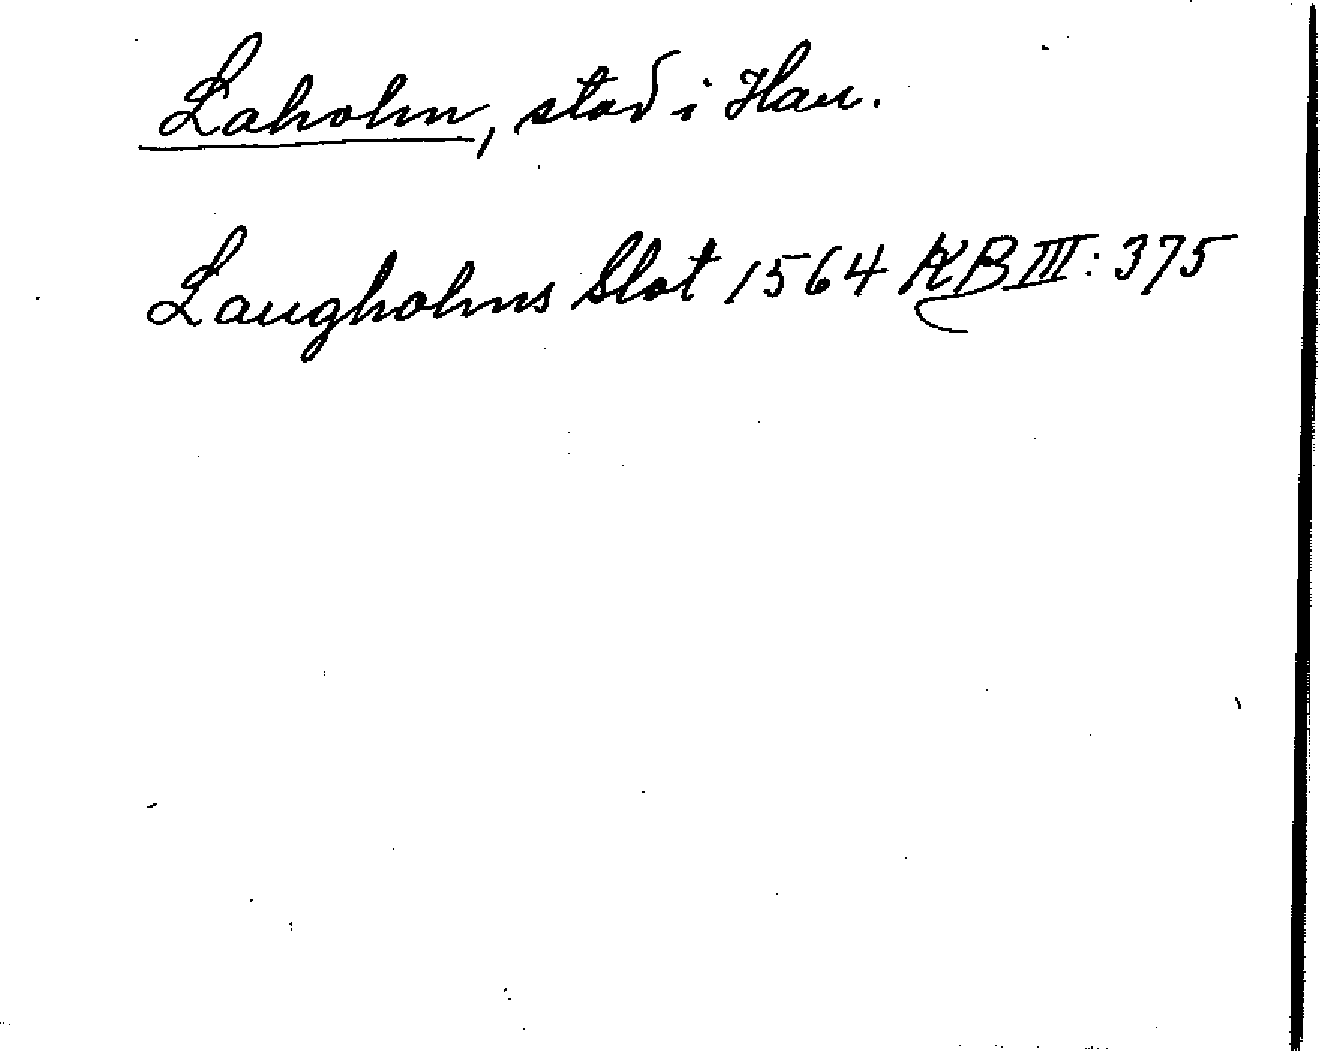 Laholm, stad i Hall.
Laugholms Slot 1564 KB III: 375